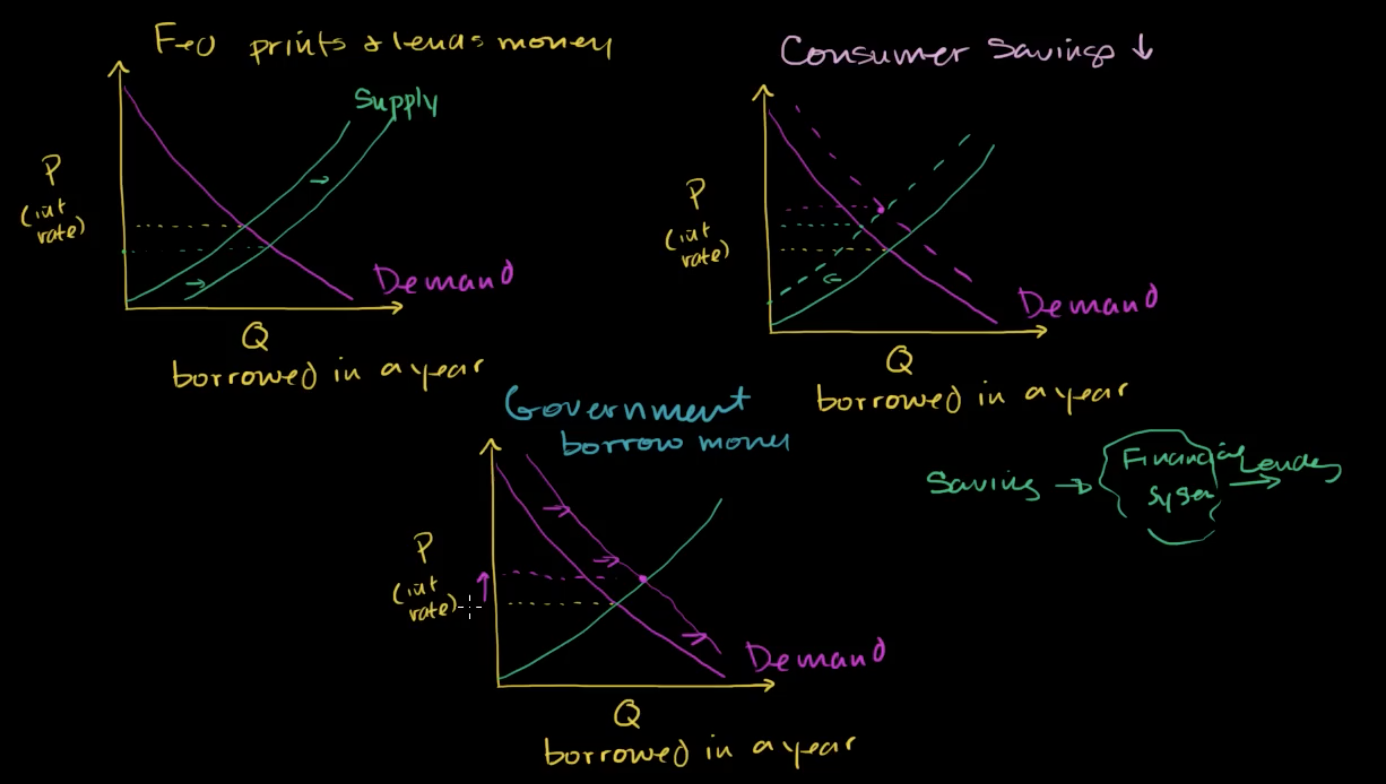 Fed prints & lends money
Supply
P
(int
rate)
Demand
Q
borrowed in a year
Consumer Savings ↓
P
(int
rate)
Demand
Q
borrowed in a year
Government
borrow money
P
(int
rate)
Demand
Q
borrowed in a year
Saving → Financial → Lending
System